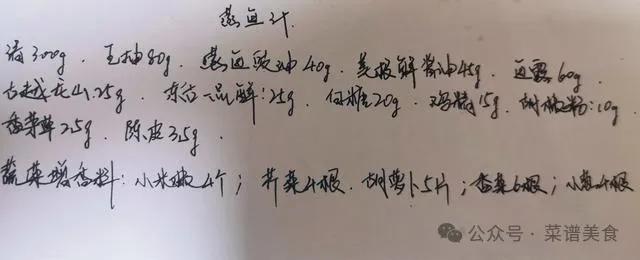 蒸鱼汁
汤300g、生抽80g、蒸鱼豉油40g、美极鲜酱油45g、鱼露60g、
古越龙山25g、东古一品鲜:25g、白糖20g、鸡精15g、胡椒粉:10g、
香茅草25g、陈皮35g、
蔬菜增香料:小米椒4个;芹菜4根、胡萝卜5片;香菜6根;小葱4根
公众号·菜谱美食